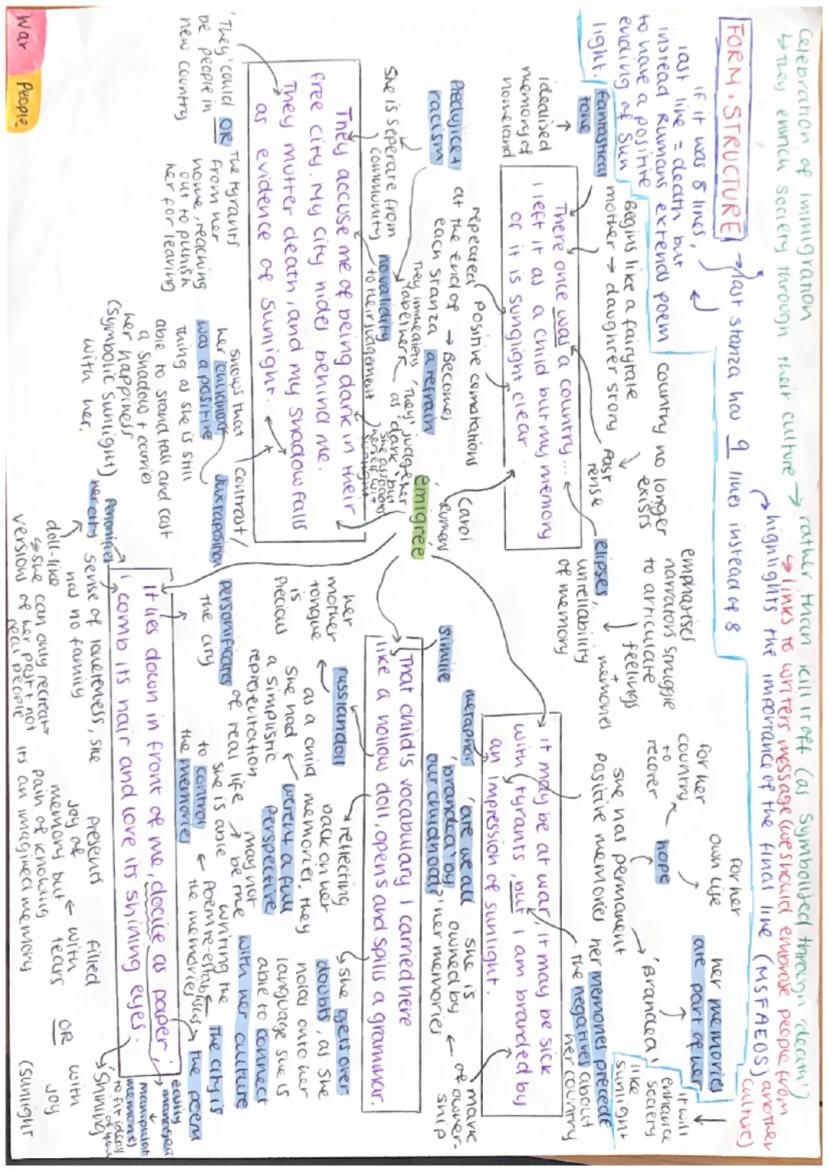 Celebration of immigration
↳ They enrich society through their culture → rather than kill it off (as symbolised through 'death')
↳ links to writers message (we should embrace people from another culture)
FORM + STRUCTURE → last stanza has 9 lines instead of 8
↳ highlights the importance of the final line (MSFAEOS)
if it was 8 lines,
last line = death but
instead Rumans extends poem
to have a positive
ending of sun
light
fantastical
tone
↓
idealised
memory of
homeland
Begins like a fairytale
mother → daughter story
country no longer
exists
past
tense
There once was a country...
I left it as a child but my memory
of it is sunglight clear
repeated positive connotations
at the end of → Become
each stanza a refrain
elipses,
unreliability
of memory
emphasises
narrators struggle
to articulate
feelings
+
memories
Carol
Rumens
'emigrée'
for her
country
to
recover
for her
own life
hope
her memories
are part of her
'Branded'
she has permanent
positive memories
it will
enhance
society
like
sunlight
her memories precede
the negatives about
her country
It may be at war, it may be sick
with tyrants, but I am branded by
an impression of sunlight.
metaphor
'are we all
'branded' by
our childhood?'
she is
owned by
her memories
mark
of owner-
ship
simile
That child's vocabulary I carried here
like a hollow doll, opens and spills a grammar.
russian doll
her
mother
tongue
is
precious
reflecting
back on her
memories, they
werent a full
perspective
as a child
she had
a simplistic
representation
of real life
may not
be true
↳ she gets over
doubts, as she
holds onto her
language she is
able to connect
with her culture
personificates
the city
she is able
to control
the memories
writing the
poem re-establishes
the memories
The city is
the poem
It lies down in front of me, docile as paper;
I comb its hair and love its shining eyes.
easily
manipulate
memories
to fit
'Shining'
filled
with
tears OR with
joy
(sunlight
presents
joy of
memory but
pain of knowing
its an imagined memory
Personifies
her city
sense of loneliness, she
has no family
doll-like
↳ she can only recreate
versions of her past + not
real people
Prejudice
racism
She is seperate from
community
no validity
to their judgement
'They' judge her
as 'dark' but
They accuse me of being dark in their
free city. My city hides behind me.
They mutter death, and my shadow falls
as evidence of sunlight.
'They' could
be people in
new country
OR
The tyrants
from her
home, reaching
out to punish
her for leaving
shows that
her childhood
was a positive
thing as she is still
able to stand tall and cast
a shadow + carries
her happiness
(symbolic sunlight)
with her.
contrast/
Juxtaposition
War
People